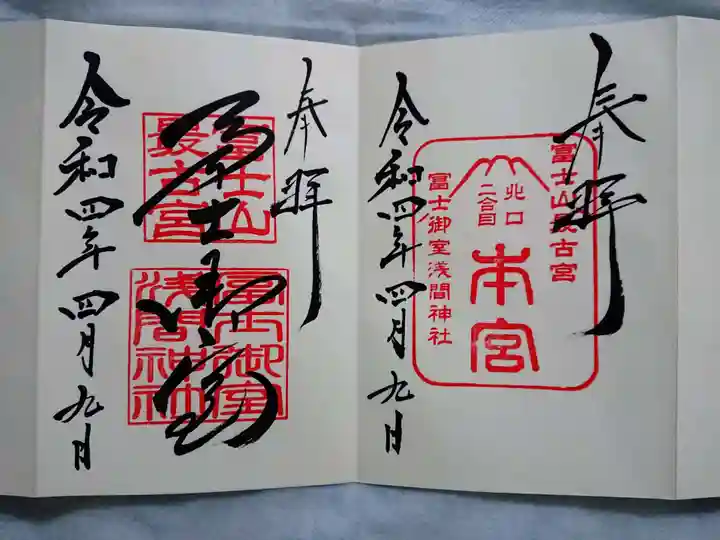 奉拝
富士山最古宮
北口
二合目
本宮
富士御室浅間神社
令和四年四月九日
奉拝
富士山
最古宮
富士御室
浅間神社
富士御室
令和四年四月九日